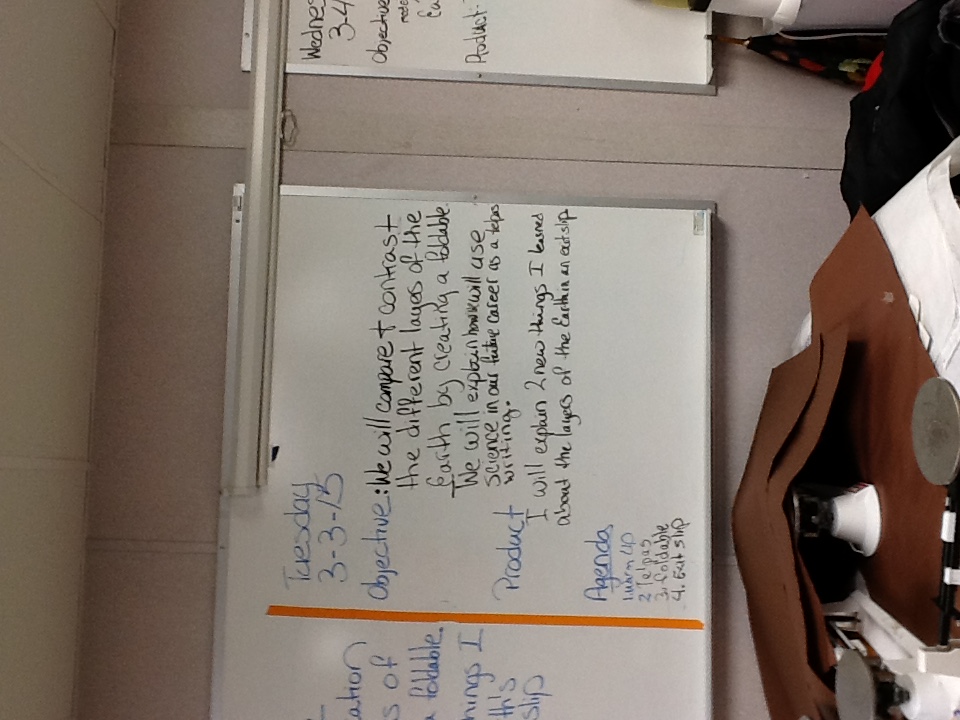 Tuesday
3-3-15
Objective: We will compare + contrast
the different layes of the
Earth by creating a foldable.
We will explain how we will use
science in our future career as a telpas
writing.
Product
I will explain 2 new things I learned
about the layes of the Earth in an exit slip
Agenda
1. Warm up
2. Telpas
3. foldable
4. Exit slip
Wednes
3-4
Objective
Product
ation
s of
a foldable.
hings I
th's
slip